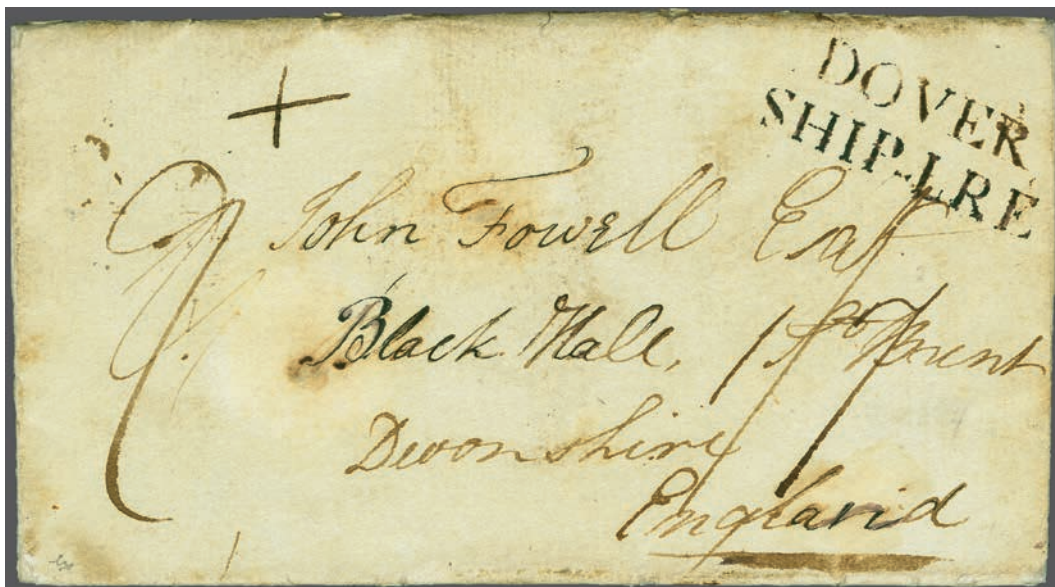 DOVER
SHIP-LRE
John Fowell Esqr
Black Hall,
Devonshire
England